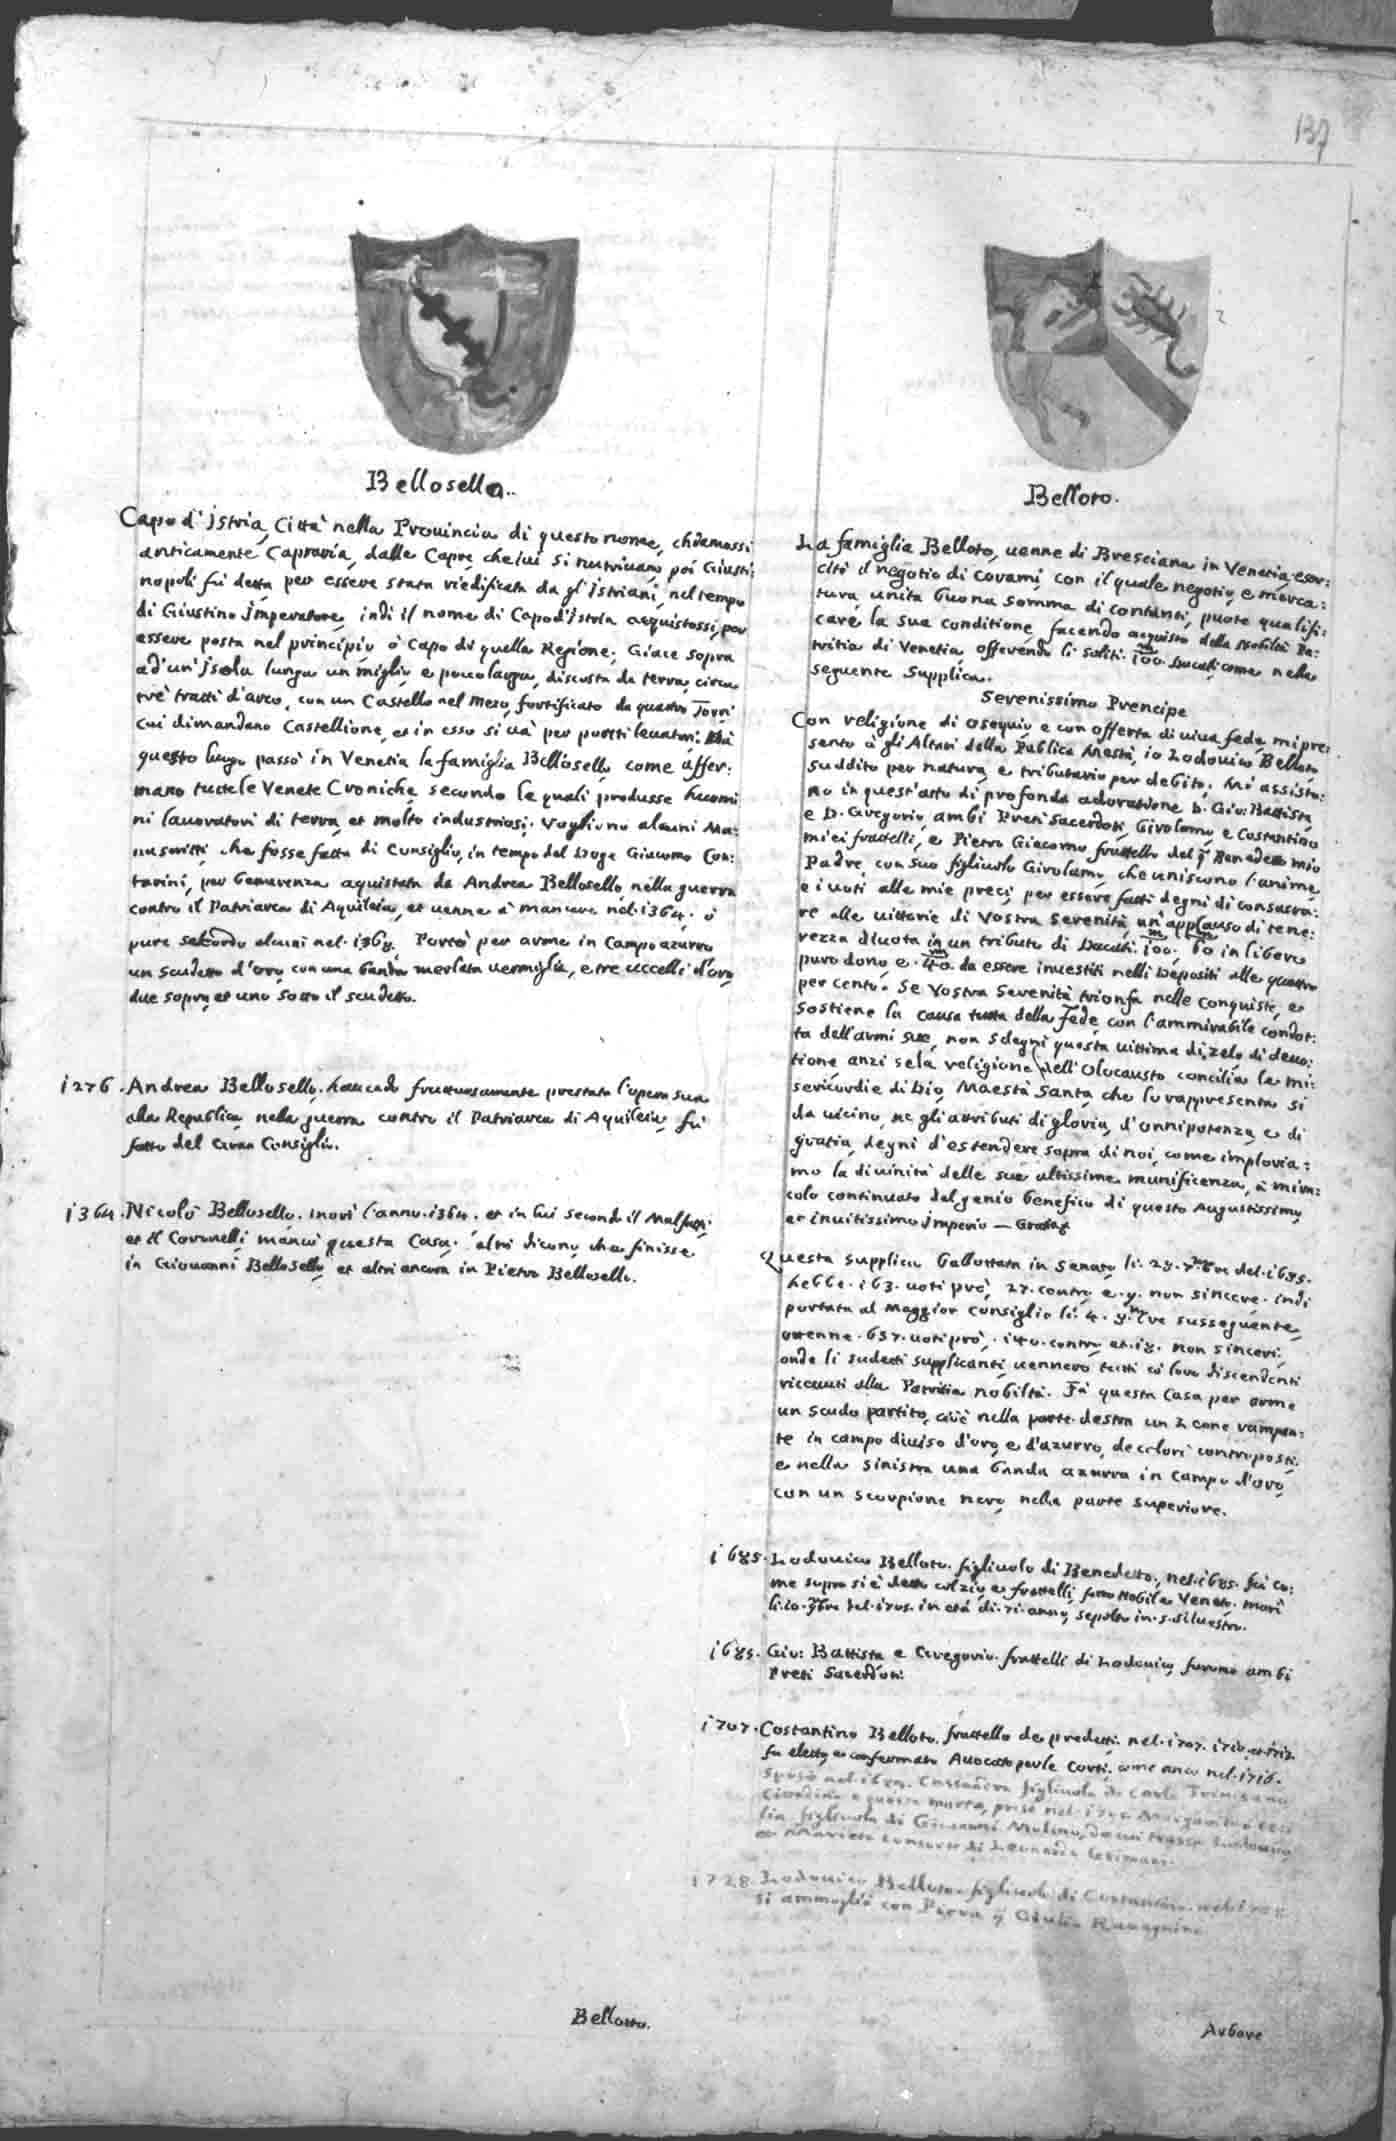 137
Bellosello.
Capo d'Istria, Città nella Provincia di questo nome, chiamossi
anticamente Capraria, dalle Capre, che iui si nutriuano, poi Giusti:
nopoli fù detta per essere stata riedificata da gl'Istriani, nel tempo
di Giustino Imperatore, indi il nome di Capo d'Istria acquistossi, per
essere posta nel principio ò Capo di quella Regione. Giace sopra
ad un'Isola lunga un miglio, e poco larga, discosta da terra, circa
trè tratti d'arco, con un Castello nel mezo, fortificato da quattro Torri
cui dimandano Castellione, et in esso si và per ponti leuatori. Da
questo luogo passò in Venetia la famiglia Bellosello, come affer:
mano tutte le Venete Croniche, secondo le quali produsse huomi
ni lauoratori di terra, et molto industriosi. Vogliono alcuni Ma:
nuscritti, che fosse fatta di Consiglio, in tempo del Doge Giacomo Con:
tarini, per benemerenza aquistata da Andrea Bellosello, nella guerra
contro il Patriarca di Aquileia, et uenne à mancare nel. 1364. ò
pure secondo alcuni nel. 1368. Portò per arme in Campo azurro
un scudetto d'oro, con una banda merlata uermiglia, e tre uccelli d'oro,
due sopra, et uno sotto il scudetto.
1276. Andrea Bellosello. hauendo fruttuosamente prestata l'opera sua
alla Republica, nella guerra contro il Patriarca di Aquileia, fù
fatto del Gran Consiglio.
1364. Nicolò Bellosello. morì l'anno. 1364. et in lui secondo il Malfatti,
et il Coronelli, mancò questa Casa. altri dicono, che finisse
in Giouanni Bellosello, et altri ancora in Pietro Bellosello.
Bellotto.
Belloto.
La famiglia Belloto, uenne di Bresciana in Venetia, eser:
citò il negotio di Corami, con il quale negotio, e merca:
tura, unita buona somma di contanti, puote qualifi:
care la sua conditione, facendo acquisto della Nobiltà Pa:
tritia di Venetia, offerendo li soliti. 100. Ducati, come nella
seguente Supplica.
Serenissimo Prencipe
Con religione di osequio, e con offerta di uiua fede, mi pre:
sento à gli Altari della Publica Maestà, io Lodouico Belloto
suddito per natura, e tributario per debito. Mi assisto:
no in quest'atto di profonda adoratione D. Gio: Battista,
e D. Gregorio, ambi Preti Sacerdoti, Girolamo, e Costantino
miei frattelli, e Pietro Giacomo frattello del q. Benedetto mio
Padre, con suo figliuolo Girolamo, che uniscono l'anime,
e i uoti alle mie preci, per essere fatti degni di consacra:
re alle uittorie di Vostra Serenità, un'applauso di tene:
rezza diuota in un tributo di Ducati. 100. 60 in libero
puro dono, e. 40. da essere inuestiti nelli Depositi alle quattro
per cento. Se Vostra Serenità trionfa nelle conquiste, e
sostiene la causa tutta della Fede, con l'ammirabile condot:
ta dell'armi sue, non sdegni questa uittima di zelo di deuo:
tione, anzi se la religione dell'Olocausto concilia le mi:
sericordie di Dio, Maestà Santa, che lo rappresenta, si
da uicino, ne gli attributi di gloria, d'onnipotenza, e di
gratia, degni d'estendere sopra di noi, come implora:
mo la diuinità delle sue altissime munificenza, à mira:
colo continuato del genio benefico di questo Augustissimo,
et inuitissimo Imperio —
Questa supplica ballottata in Senato li. 28. 7bre del. 1685.
hebbe. 163. uoti prò, 27. contro, e. 9. non sincere. indi
portata al Maggior Consiglio li. 4. 9bre susseguente,
ottenne. 657. uoti prò, . 140. contro, et. 18. non sinceri.
onde li sudetti supplicanti, uennero tutti cò loro discendenti
riceuuti alla Patritia nobiltà. Fà questa Casa per arme
un scudo partito, cioè nella parte destra un Leone rampan:
te in campo diuiso d'oro, e d'azurro, de colori contraposti,
e nella sinistra una banda azurra in campo d'oro,
con un scorpione nero, nella parte superiore.
1685. Lodouico Belloto. figliuolo di Benedetto, nel. 1685. fù co:
me sopra si è detto col zio, et frattelli, fatto Nobile Veneto. morì
li. 10. 9bre del. 1705. in età di. 71. anno, sepolto in. S. Siluestro.
1685. Gio: Battista e Gregorio. frattelli di Lodouico, furono ambi
Preti Sacerdoti.
1707. Costantino Belloto. frattello de predetti. nel. 1707. 1710. et 1712.
fu eletto, e confermato Auocato per le Corti. come anco nel. 1716.
Sposò nel figliuola di Carlo
e questa morta, prese nel
figliuola di Giouanni Molino, da cui trasse Lodouico,
consorte di Leonardo
1728. Lodouico Belloto. figliuolo di Costantino. nel. 1728
si ammogliò con Piera q. Giulio
Arbore